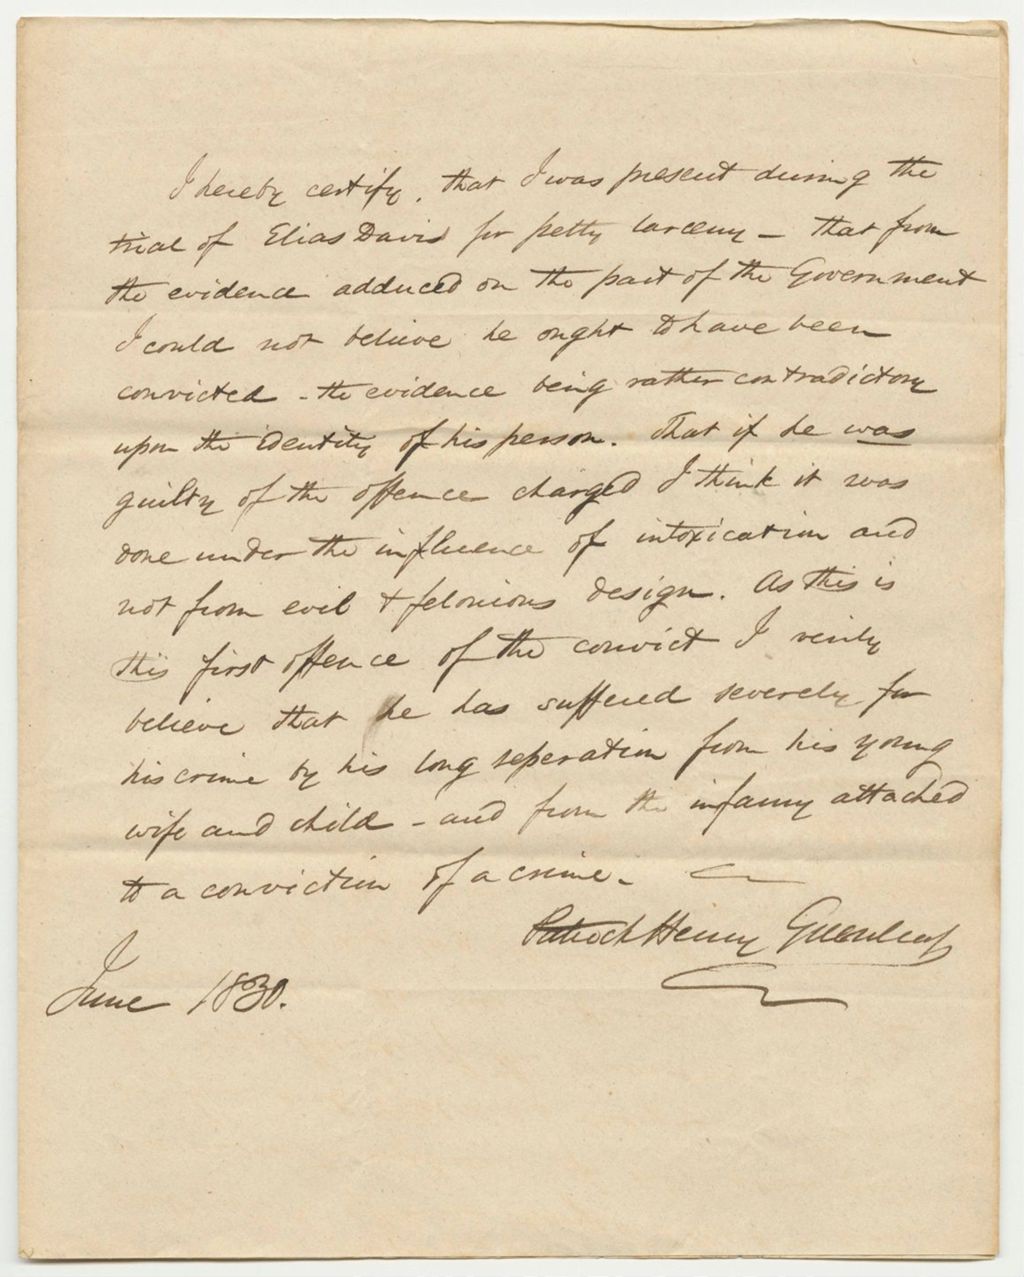 I hereby certify, that I was present during the
trial of Elias Davis for petty larceny - that from
the evidence adduced on the part of the Government
I could not believe he ought to have been
convicted - the evidence being rather contradictory
upon the identity of his person. That if he was
guilty of the offence charged I think it was
done under the influence of intoxication and
not from evil & felonious design. As this is
this first offence of the convict I verily
believe that he has suffered severely for
his crime by his long seperation from his young
wife and child - and from the infamy attached
to a conviction of a crime -
Patrick Henry Greenleaf
June 1830.